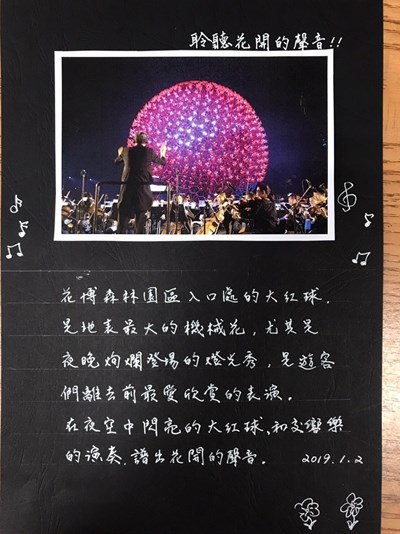 聆聽花開的聲音!!
花博森林園區入口處的大紅球,
是地表最大的機械花,尤其是
夜晚絢爛登場的燈光秀,是遊客
們離去前最愛欣賞的表演。
在夜空中閃亮的大紅球、和交響樂
的演奏,譜出花開的聲音。 2019.1.2